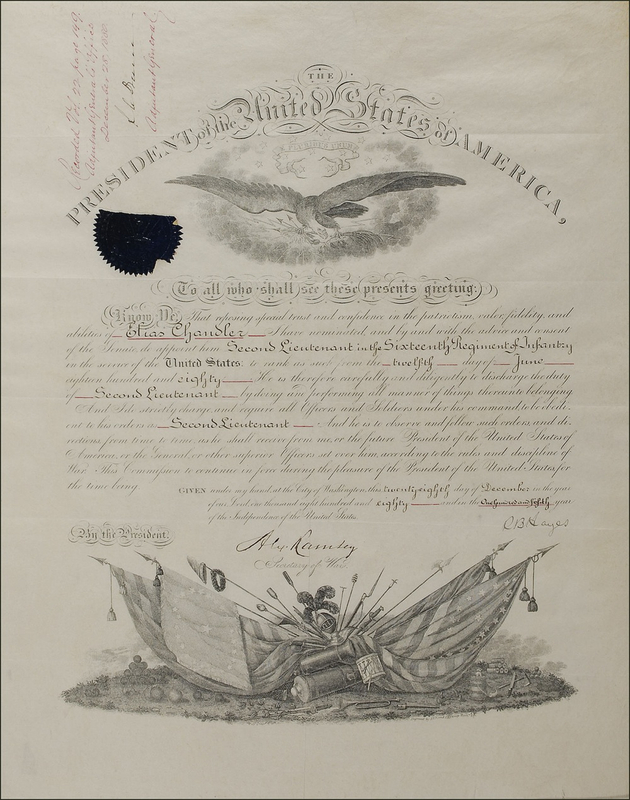 Recorded Vol. 22, Page 149
Adjutant General's Office
December 28, 1880
Adjutant General
THE
PRESIDENT of the United States of AMERICA,
E PLURIBUS UNUM
To all who shall see these presents greeting:
Know Ye, That reposing special trust and confidence in the patriotism, valor, fidelity, and
abilities of Elias Chandler I have nominated, and by and with the advice and consent
of the Senate, do appoint him Second Lieutenant in the Sixteenth Regiment of Infantry
in the service of the United States: to rank as such from the twelfth day of June
eighteen hundred and eighty He is therefore carefully and diligently to discharge the duty
of Second Lieutenant by doing and performing all manner of things thereunto belonging
And I do strictly charge, and require all Officers and Soldiers under his command to be obedi-
ent to his orders as Second Lieutenant And he is to observe and follow such orders, and di-
rections from time to time, as he shall receive from me, or the future President of the United States of
America, or the General or other superior Officers set over him, according to the rules and discipline of
War. This Commission to continue in force during the pleasure of the President of the United States, for
the time being.
GIVEN under my hand, at the City of Washington, this twenty eighth day of December in the year
of our Lord, one thousand eight hundred and eighty and in the One hundred and fifth year
of the Independence of the United States.
R B Hayes
By the President:
Alex Ramsey
Secretary of War.